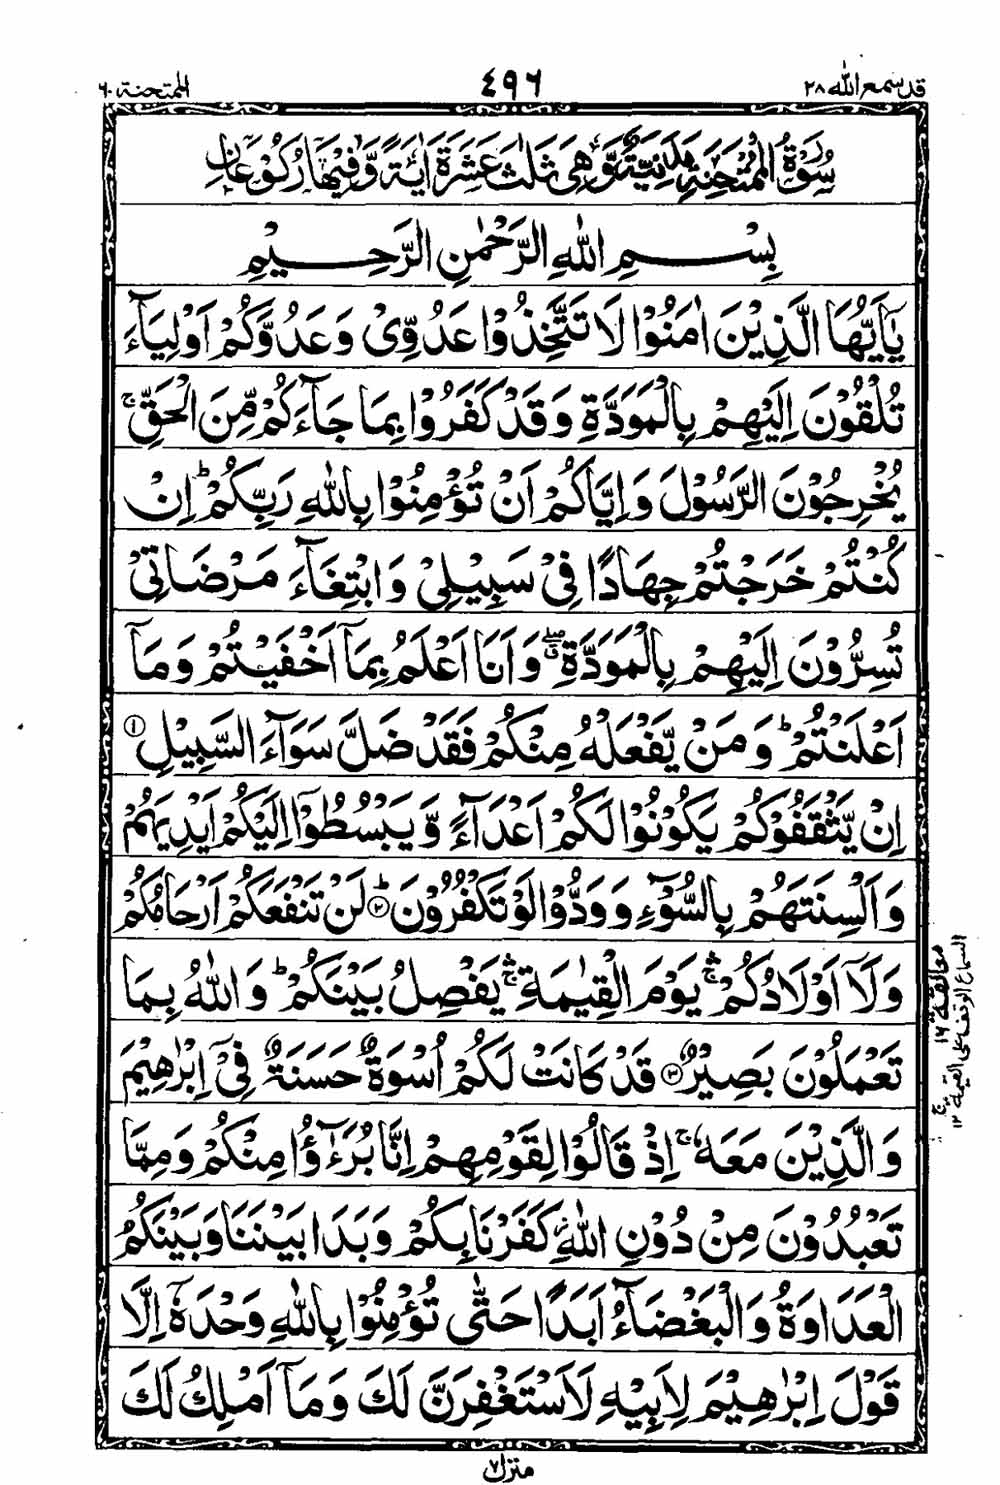 قد سمع الله ٢٨
٤٩٦
الممتحنة ٦٠
سُوْرَةُ الْمُمْتَحِنَةِ مَدَنِيَّةٌ وَّهِىَ ثَلٰثَ عَشْرَةَ اٰيَةً وَّفِيْهَا رُكُوْعَانِ
بِسْمِ اللهِ الرَّحْمٰنِ الرَّحِيْمِ
يٰۤاَيُّهَا الَّذِيْنَ اٰمَنُوْا لَا تَتَّخِذُوْا عَدُوِّىْ وَعَدُوَّكُمْ اَوْلِيَآءَ
تُلْقُوْنَ اِلَيْهِمْ بِالْمَوَدَّةِ وَقَدْ كَفَرُوْا بِمَا جَآءَكُمْ مِّنَ الْحَقِّ ۚ
يُخْرِجُوْنَ الرَّسُوْلَ وَاِيَّاكُمْ اَنْ تُؤْمِنُوْا بِاللهِ رَبِّكُمْ ؕ اِنْ
كُنْتُمْ خَرَجْتُمْ جِهَادًا فِىْ سَبِيْلِىْ وَابْتِغَآءَ مَرْضَاتِىْ
تُسِرُّوْنَ اِلَيْهِمْ بِالْمَوَدَّةِ ۖ وَاَنَا اَعْلَمُ بِمَاۤ اَخْفَيْتُمْ وَمَاۤ
اَعْلَنْتُمْ ؕ وَمَنْ يَّفْعَلْهُ مِنْكُمْ فَقَدْ ضَلَّ سَوَآءَ السَّبِيْلِ ①
اِنْ يَّثْقَفُوْكُمْ يَكُوْنُوْا لَكُمْ اَعْدَآءً وَّيَبْسُطُوْۤا اِلَيْكُمْ اَيْدِيَهُمْ
وَاَلْسِنَتَهُمْ بِالسُّوْٓءِ وَوَدُّوْا لَوْ تَكْفُرُوْنَ ؕ② لَنْ تَنْفَعَكُمْ اَرْحَامُكُمْ
وَلَاۤ اَوْلَادُكُمْ ۛۚ يَوْمَ الْقِيٰمَةِ ۛۚ يَفْصِلُ بَيْنَكُمْ ؕ وَاللهُ بِمَا
تَعْمَلُوْنَ بَصِيْرٌ ③ قَدْ كَانَتْ لَكُمْ اُسْوَةٌ حَسَنَةٌ فِىْۤ اِبْرٰهِيْمَ
وَالَّذِيْنَ مَعَهٗ ۚ اِذْ قَالُوْا لِقَوْمِهِمْ اِنَّا بُرَءٰٓؤُا مِنْكُمْ وَمِمَّا
تَعْبُدُوْنَ مِنْ دُوْنِ اللهِ ؗ كَفَرْنَا بِكُمْ وَبَدَا بَيْنَنَا وَبَيْنَكُمُ
الْعَدَاوَةُ وَالْبَغْضَآءُ اَبَدًا حَتّٰى تُؤْمِنُوْا بِاللهِ وَحْدَهٗۤ اِلَّا
قَوْلَ اِبْرٰهِيْمَ لِاَبِيْهِ لَاَسْتَغْفِرَنَّ لَكَ وَمَاۤ اَمْلِكُ لَكَ
معانقة ١٦
منزل ٧